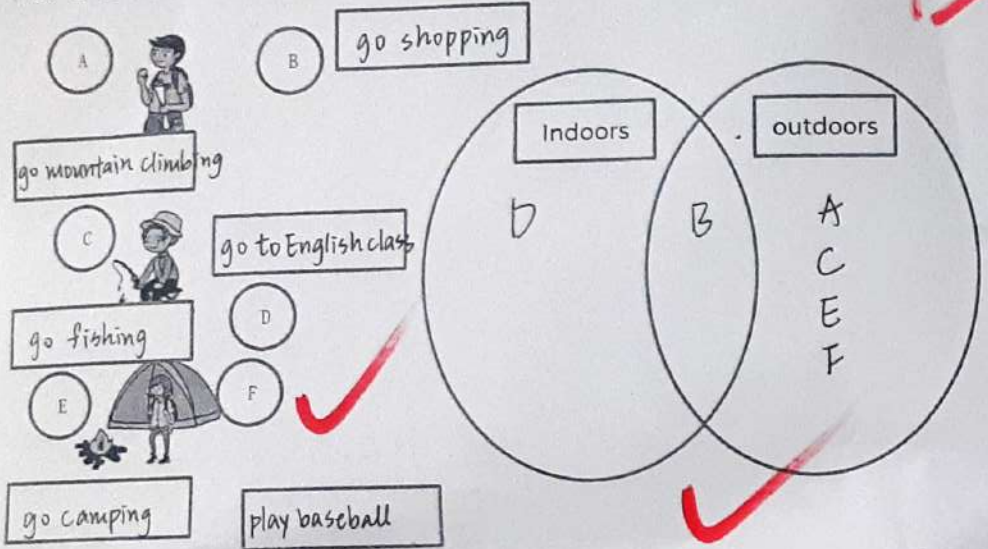 A
B
go shopping
go mountain climbing
C
go to English class
D
go fishing
E
F
go camping
play baseball
Indoors
outdoors
D
B
A
C
E
F